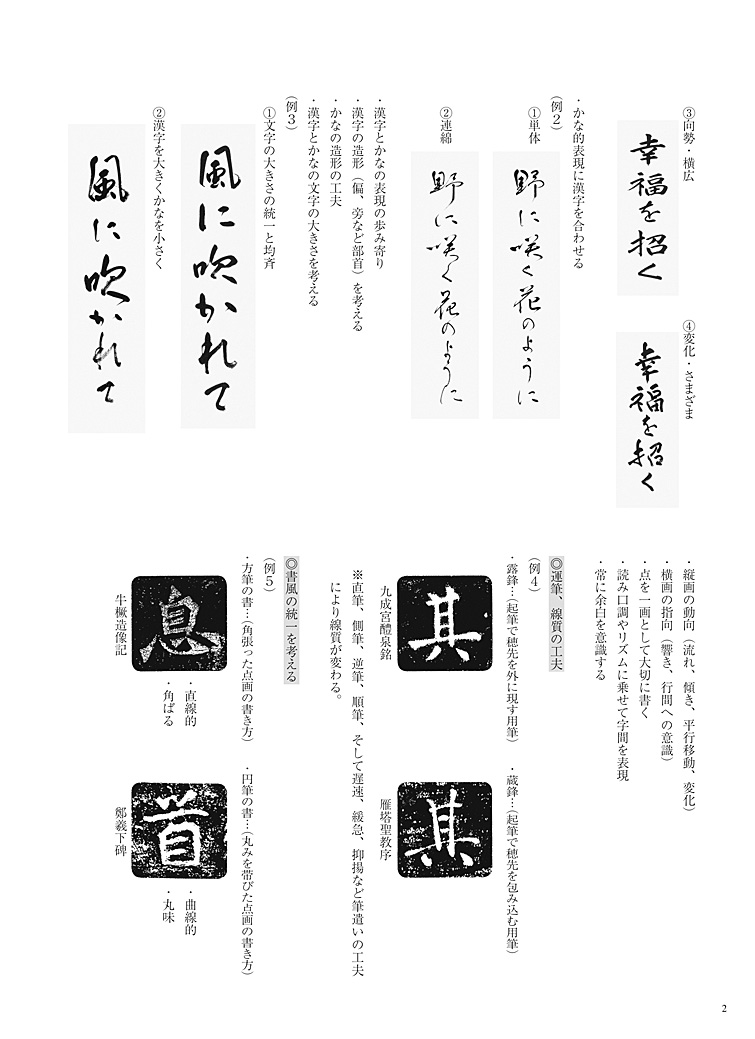 ③向勢・横広
幸福を招く
④変化・さまざま
幸福を招く
・かな的表現に漢字を合わせる
(例2)
①単体
野に咲く花のように
②連綿
野に咲く花のように
・漢字とかなの表現の歩み寄り
・漢字の造形(偏、旁など部首)を考える
・かなの造形の工夫
・漢字とかなの文字の大きさを考える
(例3)
①文字の大きさの統一と均斉
風に吹かれて
②漢字を大きくかなを小さく
風に吹かれて
・縦画の動向(流れ、傾き、平行移動、変化)
・横画の指向(響き、行間への意識)
・点を一画として大切に書く
・読み口調やリズムに乗せて字間を表現
・常に余白を意識する
◎運筆、線質の工夫
(例4)
・露鋒…(起筆で穂先を外に現す用筆)
其
九成宮醴泉銘
・蔵鋒…(起筆で穂先を包み込む用筆)
其
雁塔聖教序
※直筆、側筆、逆筆、順筆、そして遅速、緩急、抑揚など筆遣いの工夫
により線質が変わる。
◎書風の統一を考える
(例5)
・方筆の書…(角張った点画の書き方)
・直線的
・角ばる
息
牛橛造像記
・円筆の書…(丸みを帯びた点画の書き方)
・曲線的
・丸味
首
鄭羲下碑
2